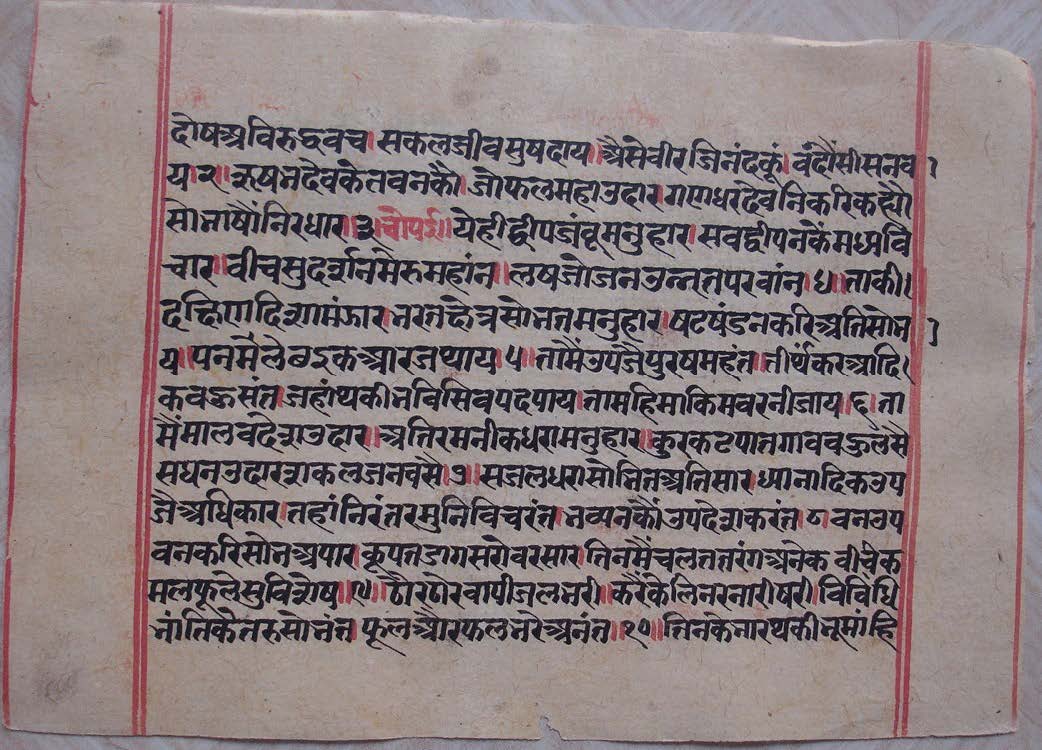 दोषअविरुद्धवच। सकलजीवसुषदाय॥ औसेवीरजिनंदकूं। वंदौंसीसनव
य।२॥ रुषभदेवकेतवनकौ। जोफलमहाउदार। गणधरदेवनिकरिकह्यौ
सोभाषौंनिरधार।३। चौपई॥ येहीद्वीपजंबूमनुहार। सवद्वीपनकेमध्यवि
चार॥ वीचसुदर्शनमेरुमहांन॥ लषजोजनउन्नतपरवांन।४। ताकी।
दछिणदिशामंझार। भरतछेत्रसोभतमनुहार। षटषंडनकरिअतिसोभ
य। पनमलेछइकआरजथाय।५। तामैंउपजैपुरषमहंत। तीर्थंकरआदि।
कवहुसंत। जहांथकीभविसिवपदपाय। तामहिमाकिमवरनीजाय।६। ता
मैंमालवदेशउदार॥ अतिरमनीकधरामनुहार। कुरकटपातगाववहुलसै
सधनउदारशकलजनवसै।७॥ सजलधरासोभितअतिसार। ध्यानादिकउप
जैअधिकार। तहांनिरंतरमुनिविचरंत। भव्यनकौंउपदेशकरंत।८। वनउप
वनकरिसोभअपार। कूपतडागसरोवरसार। तिनमैंचलततरंगअनेक वीचक
मलफूलेसुविशेष॥९॥ ठौरठौरवापीजलभरी। करैंकेलिनरनारीषरी। विविधि
भांतिकेतरुसोभंत। फूलऔरफलभरेअनंत॥१०॥ तिनकेभारथकीभूमांहि